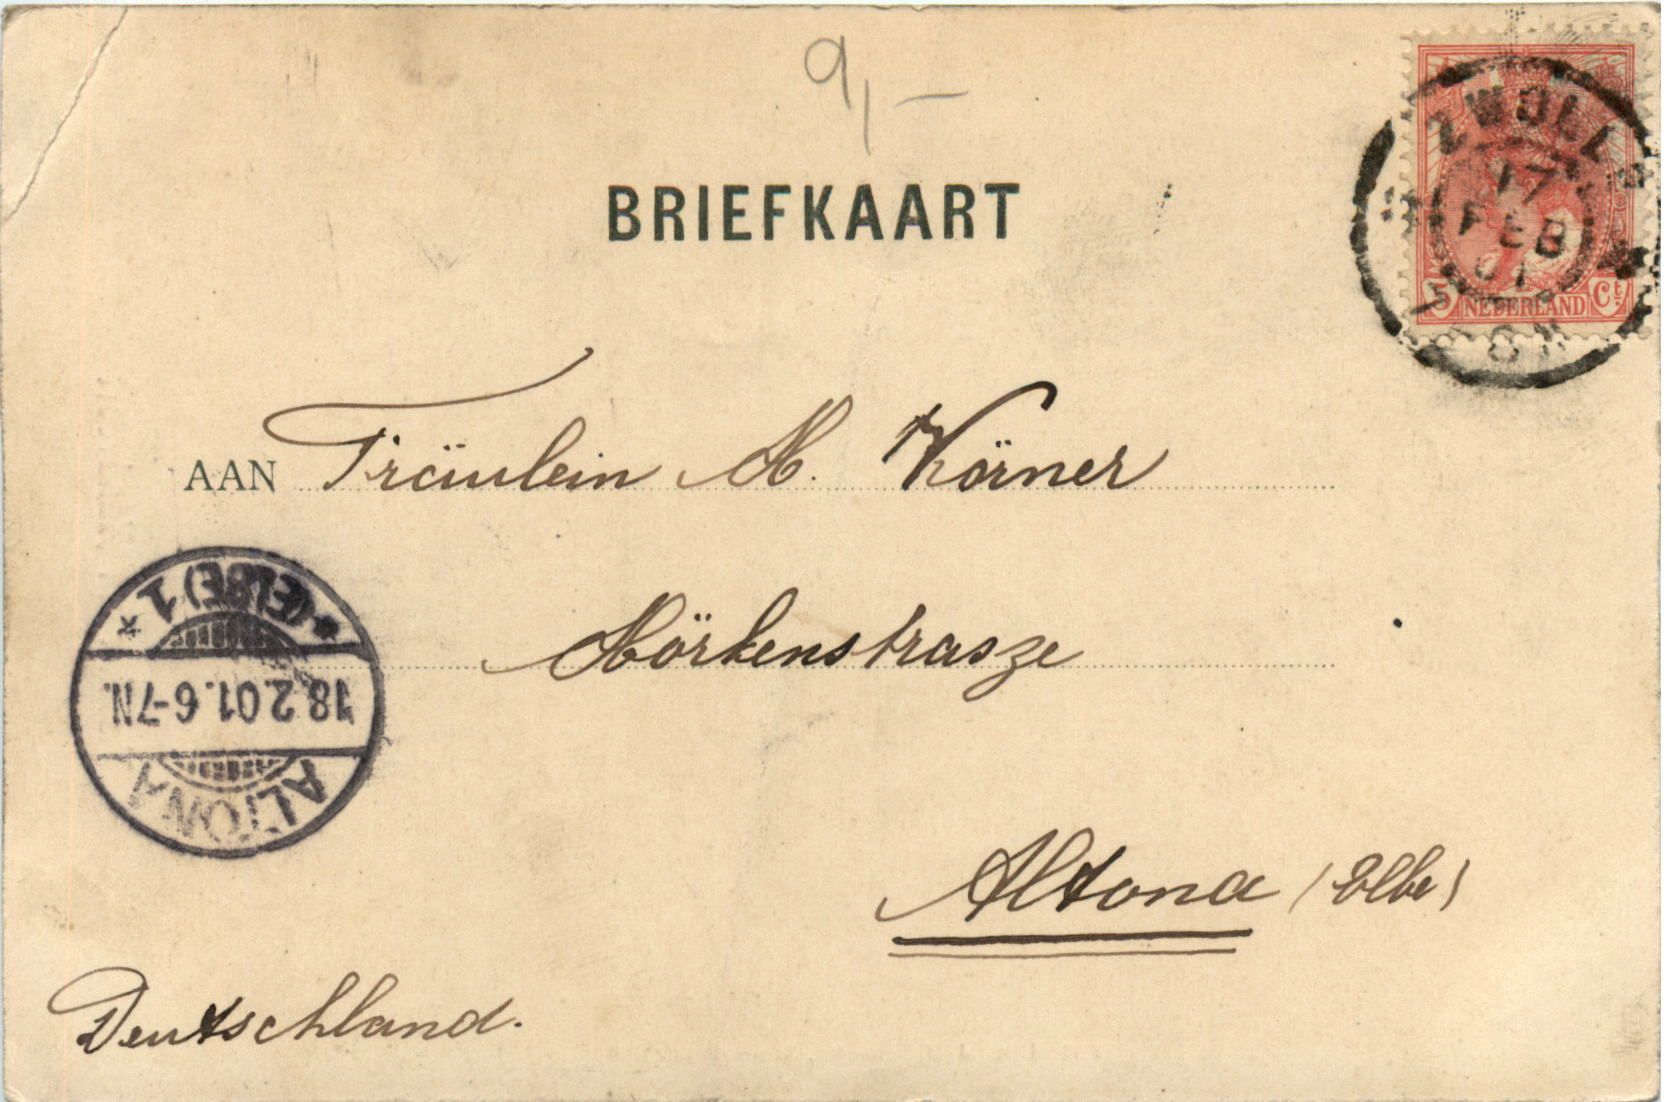 9,-
BRIEFKAART
ZWOLLE
17
FEB
01
5 NEDERLAND Ct
AAN Fräulein M. Körner
Mörkenstrasze
Altona (Elbe)
Deutschland.
ALTONA
18.2.01.6-7N.
* (ELBE) 1 *